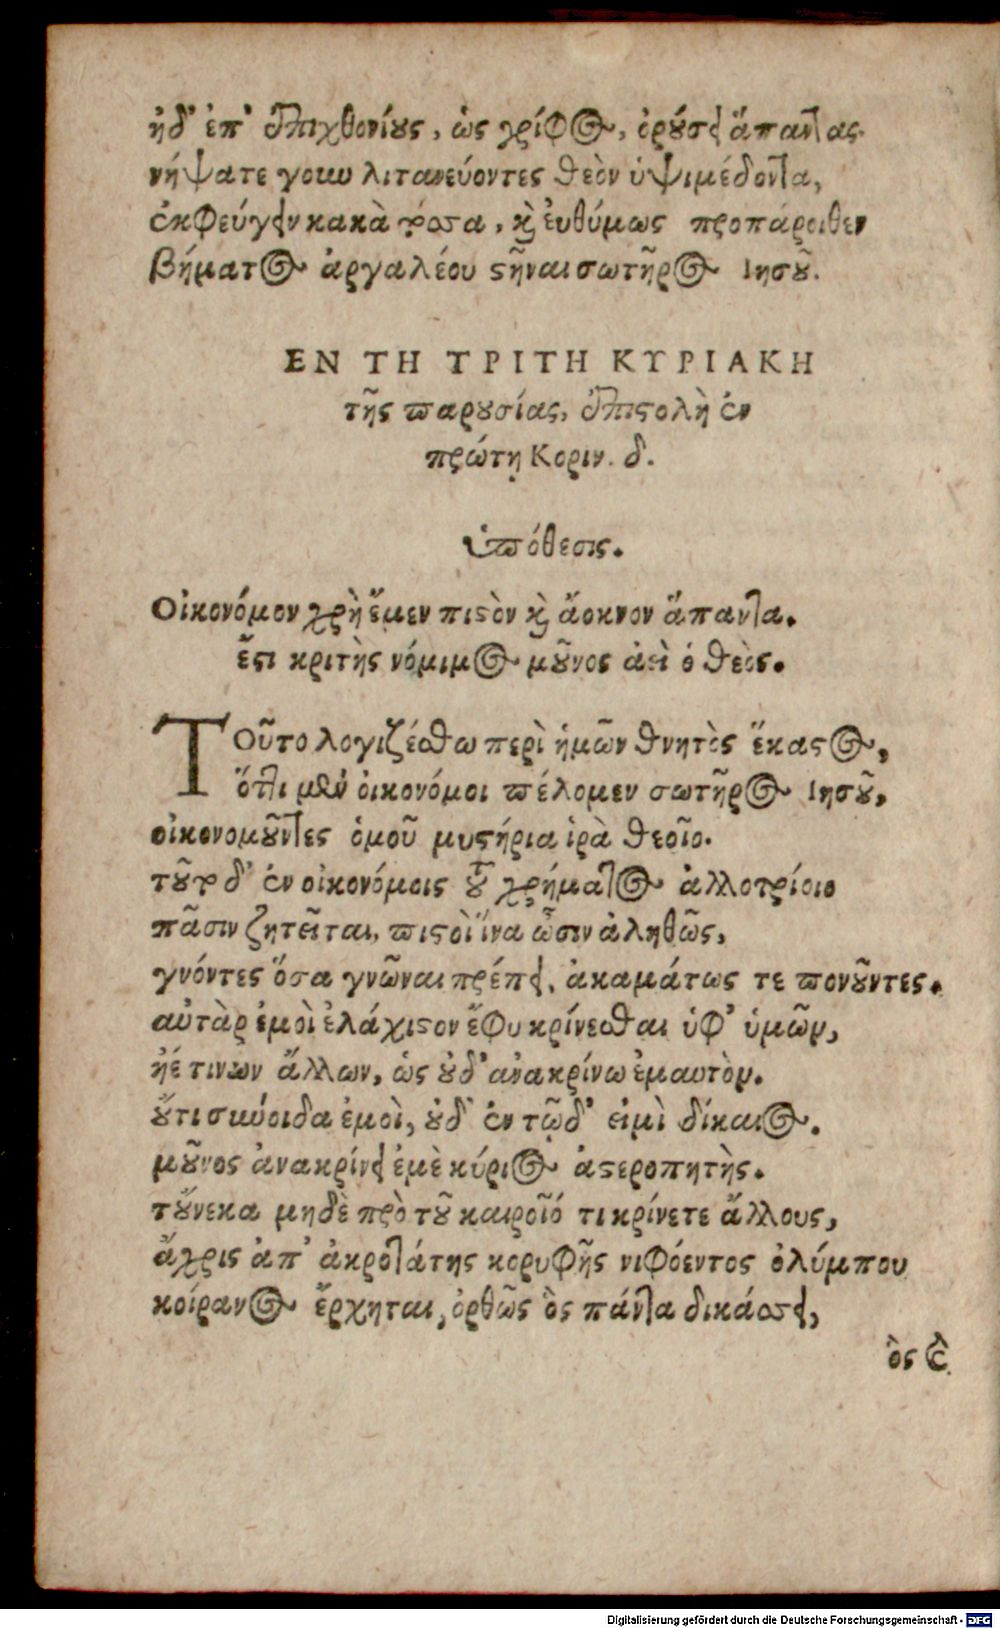 ἠδ' ἐπ' ἐπιχθονίους, ὡς γρίφος, ὀρούσει ἅπαντας.
νήψατε γοιῶ λιτανεύοντες θεὸν ὑψιμέδοντα,
ἐκφεύγειν κακὰ τόσα, καὶ εὐθύμως προπάροιθεν
βήματος ἀργαλέου στῆναι σωτῆρος Ιησοῦ.
ΕΝ ΤΗ ΤΡΙΤΗ ΚΥΡΙΑΚΗ
τῆς παρουσίας, ἐπιστολὴ ἐν
πρώτῃ Κοριν. δ.
ὑπόθεσις.
Οἰκονόμον χρὴ ἔμεν πιστὸν καὶ ἄοκνον ἅπαντα.
ἔστι κριτὴς νόμιμος μοῦνος ἀεὶ ὁ θεὸς.
ΤΟῦτο λογιζέσθω περὶ ἡμῶν θνητὸς ἕκαστος,
ὅττι μὲν οἰκονόμοι πέλομεν σωτῆρος Ιησοῦ,
οἰκονομοῦντες ὁμοῦ μυστήρια ἱρὰ θεοῖο.
τοῦτο δ' ἐν οἰκονόμοις τοῦ χρήματος ἀλλοτρίοιο
πᾶσιν ζητεῖται, πιστοὶ ἵνα ὦσιν ἀληθῶς,
γνόντες ὅσα γνῶναι πρέπει, ἀκαμάτως τε πονοῦντες.
αὐτὰρ ἐμοὶ ἐλάχιστον ἔφυ κρίνεσθαι ὑφ' ὑμῶν,
ἠέ τινων ἄλλων, ὡς οὐδ' ἀνακρίνω ἐμαυτὸν.
οὔτι σύνοιδα ἐμοὶ, οὐδ' ἐν τῷδ' εἰμὶ δίκαιος.
μοῦνος ἀνακρίνει ἐμὲ κύριος ἀστεροπητὴς.
τοὔνεκα μηδὲ πρὸ τοῦ καιροῖό τι κρίνετε ἄλλους,
ἄχρις ἀπ' ἀκροτάτης κορυφῆς νιφόεντος ὀλύμπου
κοίρανος ἔρχηται, ὀρθῶς ὃς πάντα δικάσσει,
ὃς ἐ
Digitalisierung gefördert durch die Deutsche Forschungsgemeinschaft - DFG